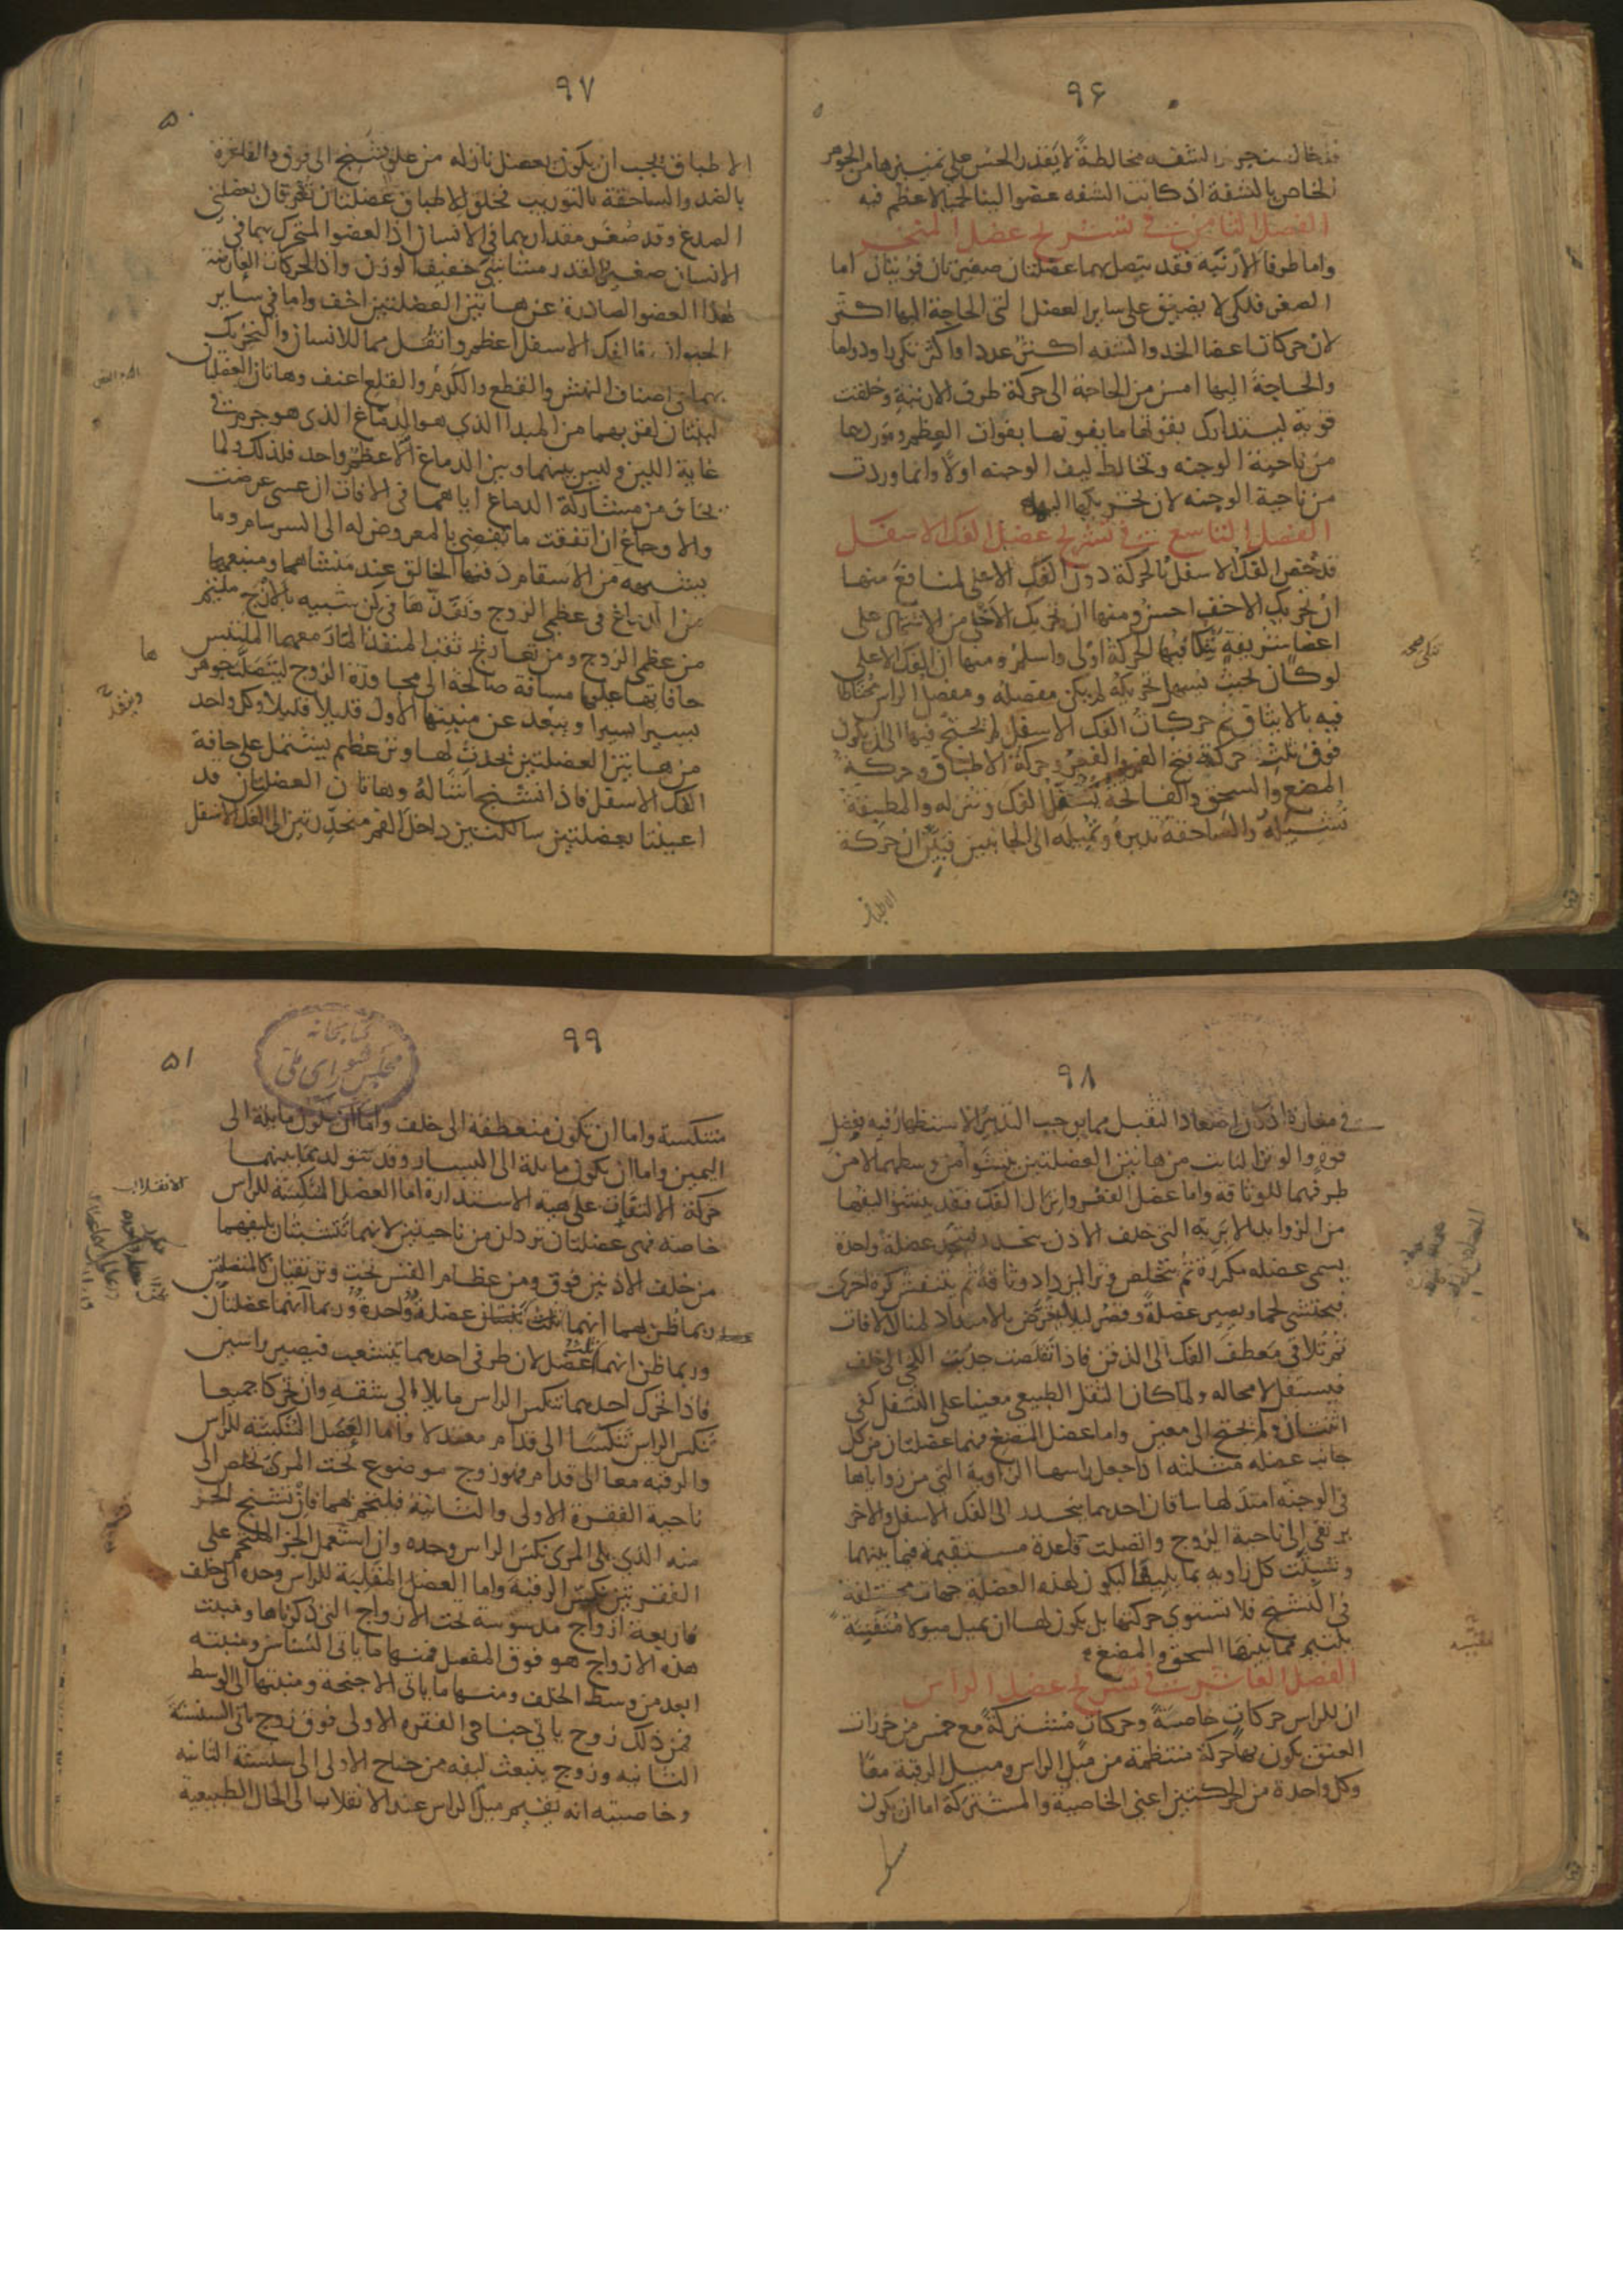 ٩۶
فتخالط جرم الشفه مخالطة لا يقدر الحس على تمييزها من الجوهر
الخاص بالشفة اذ كانت الشفه عضوا لينا لحميا لا عظم فيه
الفصل الثامن في تشريح عضل المنخر
واما طرفا الارنبة فقد يتصل بهما عضلتان صغيرتان قويتان اما
الصغر فلكى لا يضيق على ساير العضل التى الحاجة اليها اكثر
لان حركات اعضا الخد والشفه اكثر عددا واكثر تكررا ودواما
والحاجة اليها امس من الحاجة الى حركة طرف الارنبة وخلقت
قوية ليتدارك بقوتها ما يفوتها بفوات العظم وموردها
من ناحية الوجنه وتخالط ليف الوجنه اولا وانما وردت
من ناحية الوجنه لان تحريكها اليها
الفصل التاسع في تشريح عضل الفك الاسفل
قد خص الفك الاسفل بالحركة دون الفك الاعلى لمنافع منها
ان تحريك الاخف احسن ومنها ان تحريك الاخلى من الاشتمال على
اعضا شريفة تنكا فيها الحركة اولى واسلم ومنها ان الفك الاعلى
لو كان بحيث يسهل تحريكه لم يكن مفصله ومفصل الراس محتاطا
فيه بالايثاق ثم حركات الفك الاسفل لم يحتج فيها الى ان يكون
فوق ثلث حركة فتح الفم والفغر وحركة الاطباق وحركة
المضغ والسحق والفاتحة تسفل الفك وتنزله والمطبقة
تشيله والساحقة تديره وتميله الى الجانبين فبين ان حركة
الاطباق
٩٧
۵۰
الاطباق يجب ان يكون بعضل نازله من علو يتشنج الى فوق والفاغرة
بالضد والساحقة بالتوريب فخلق للاطباق عضلتان تعرفان بعضلتى
الصدغ وقد صغر مقدارهما فى الانسان اذ العضو المتحرك بهما فى
الانسان صغير القدر مشاشى خفيف الوزن واذ الحركات العارضة
لهذا العضو الصادرة عن هاتين العضلتين اخف واما فى ساير
الحيوان فالفك الاسفل اعظم واثقل مما للانسان والتحريك
بهما فى اصناف النهش والقطع والكدم والقلع اعنف وهاتان العضلتان
لينتان لقربهما من المبدا الذى هو الدماغ الذى هو جرم فى
غاية اللين وليس بينهما وبين الدماغ الا عظم واحد فلذلك ولما
يخاف من مشاركة الدماغ اياهما فى الافات ان عسى عرضت
والاوجاع ان اتفقت ما يفضى بالمعروض له الى السرسام وما
يشبهه من الاسقام دفنها الخالق عند منشاهما ومنبعهما
من الدماغ فى عظمى الزوج ونفذها فى كن شبيه بالازج ملتئم
من عظمى الزوج ومن تعاريج ثقب المنفذ المار معهما الملتبس
حافاتها عليها مسافة صالحة الى مجاوزة الزوج ليتصلب جوهر
يسيرا يسيرا ويبعد عن منبتها الاول قليلا قليلا وكل واحد
من هاتين العضلتين يحدث لها وتر عظيم يشتمل على حافة
الفك الاسفل فاذا تشنج اشاله وهاتان العضلتان قد
اعينتا بعضلتين سالكتين داخل الفم منحدرتين الى الفك الاسفل
ها
٩٨
فى مغارة اذ كان اصعاد الثقيل مما يوجب التدبير الاستظهار فيه بفضل
قوة والوتر النابت من هاتين العضلتين ينشوا من وسطهما لا من
طرفهما للوثاقة واما عضل الفغر وانزال الفك فقد ينشو ليفها
من الزوايد الابرية التى خلف الاذن يتحد عضلة واحدة
يسمى عضله مكررة ثم يتخلص وترا ليزداد وثاقة ثم يتنفش كرة اخرى
فيحتشى لحما ويصير عضلة وقصر لئلا يتعرض بالامتداد لمنال الافات
ثم تلاقى معطف الفك الى الذقن فاذا تقلصت جذبت اللحى الى خلف
فيتسفل لا محاله ولما كان الثقل الطبيعى معينا على التسفل كفى
اثنتان ولم يحتج الى معين واما عضل المضغ فهما عضلتان من كل
جانب عضله مثلثه اذا جعل راسها الزاوية التى من زواياها
فى الوجنه امتد لها ساقان احدهما ينحدر الى الفك الاسفل والاخر
يرتقى الى ناحية الزوج واتصلت قاعدة مستقيمة فيما بينهما
وتشبثت كل زاويه بما يليها ليكون لهذه العضلة جهات مختلفة
فى التشنج فلا تستوى حركتها بل يكون لها ان يميل ميولا متفننة
يلتئم فيما بينها السحق والمضغ
الفصل العاشر في تشريح عضل الراس
ان للراس حركات خاصية وحركات مشتركة مع خمس من خرزات
العنق يكون بها حركة منتظمة من ميل الراس وميل الرقبة معا
وكل واحدة من الحركتين اعنى الخاصية والمشتركة اما ان يكون
٩٩
۵۱
كتابخانه
مجلس شوراى ملى
متنكسة واما ان يكون منعطفة الى خلف واما ان يكون مايلة الى
اليمين واما ان يكون مايلة الى اليسار وقد يتولد مما بينهما
حركة الالتفات على هيئة الاستدارة اما العضل المنكسة للراس
خاصه فهى عضلتان تردان من ناحيتين لانهما تتشبثان بليفهما
من خلف الاذنين فوق ومن عظام القس تحت وترتقيان كالمتصلتين
وربما ظن بهما انهما عضلة واحدة وربما انهما عضلتان
وربما ظن انهما ثلث عضل لان طرفى احدهما يتشعب فيصير راسين
فاذا تحرك احدهما تنكس الراس مايلا الى شقه وان تحركا جميعا
تنكس الراس تنكسا الى قدام معتدلا واما العضل المنكسة للراس
والرقبه معا الى قدام فهو زوج موضوع تحت المرى يخلص الى
ناحية الفقرة الاولى والثانية فيلتحم بهما فان تشنج الجز
منه الذى يلى المرى نكس الراس وحده وان استعمل الجز الملتحم على
الفقرتين نكس الرقبة واما العضل المقلبة للراس وحده الى خلف
فاربعة ازواج مدسوسة تحت الازواج التى ذكرناها ومنبت
هذه الازواج هو فوق المفصل فمنها ما ياتى السناسن ومنبته
ابعد من وسط الخلف ومنها ما ياتى الاجنحة ومنبتها الى الوسط
فمن ذلك زوج ياتى جناحى الفقره الاولى فوق زوج ياتى السنسنة
الثانيه وزوج ينبعث ليفه من جناح الاولى الى سنسنة الثانيه
وخاصيته انه يقيم ميل الراس عند الانقلاب الى الحال الطبيعية
الانقلاب